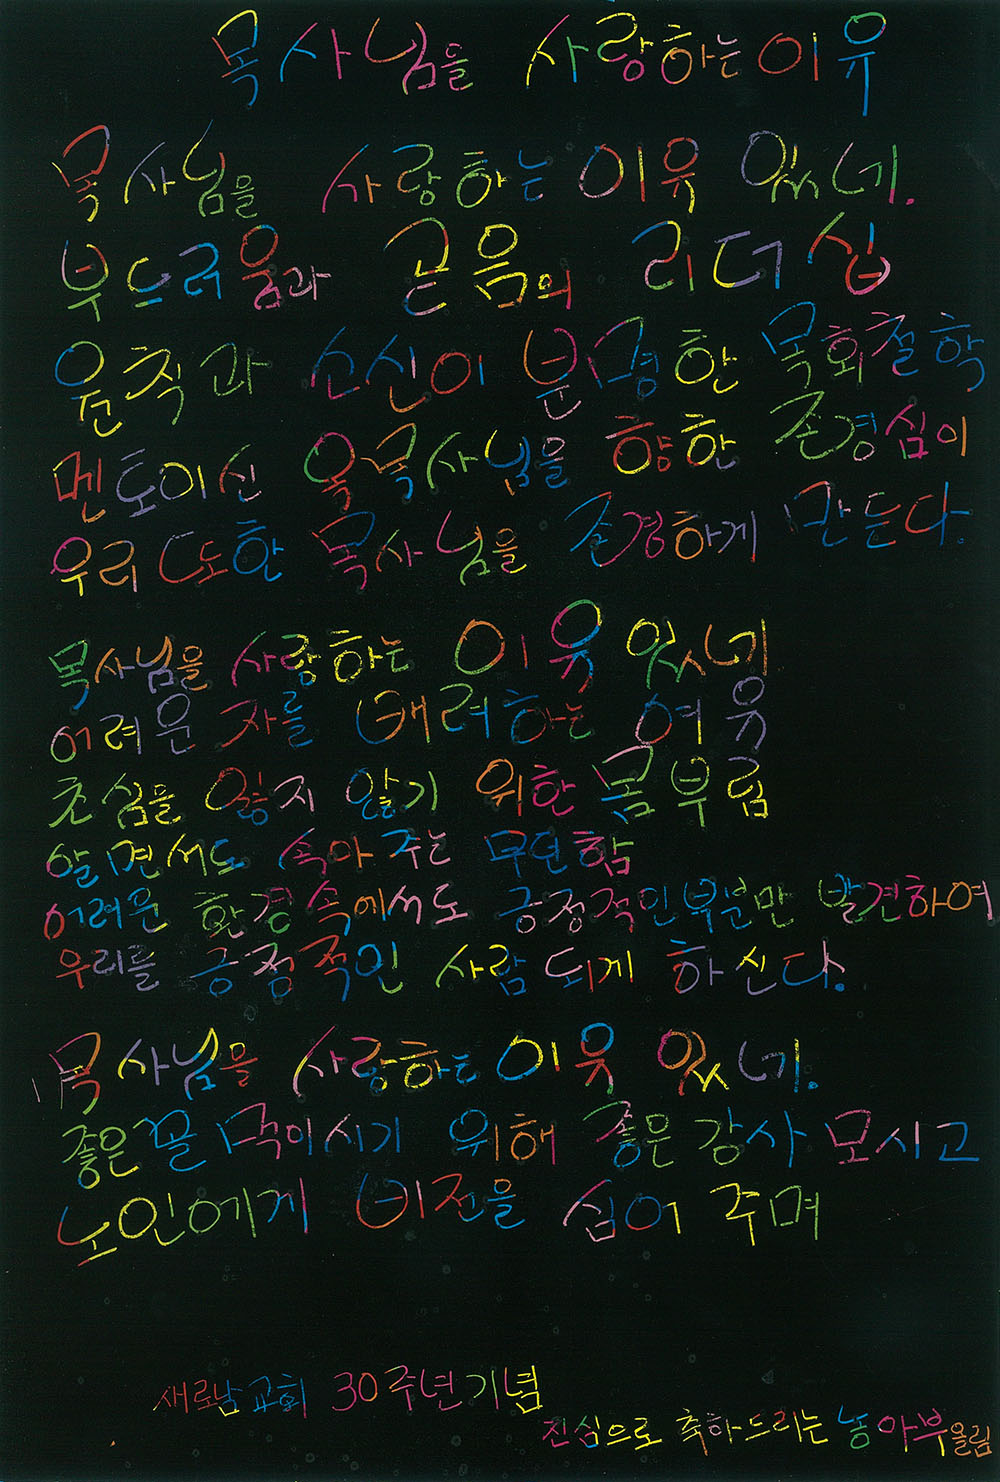 목사님을 사랑하는 이유
목사님을 사랑하는 이유 있네.
부드러움과 곧음의 리더십
원칙과 소신이 분명한 목회철학
멘토이신 옥목사님을 향한 존경심이
우리 또한 목사님을 존경하게 만든다.
목사님을 사랑하는 이유 있네
어려운 자를 배려하는 여유
초심을 잃지 않기 위한 몸부림
알면서도 속아 주는 무던함
어려운 환경 속에서도 긍정적인 부분만 발견하여
우리를 긍정적인 사람 되게 하신다.
목사님을 사랑하는 이유 있네.
좋은 꼴 먹이시기 위해 좋은 강사 모시고
노인에게 비전을 심어 주며
새로남교회 30주년기념
진심으로 축하드리는 농아부 올림